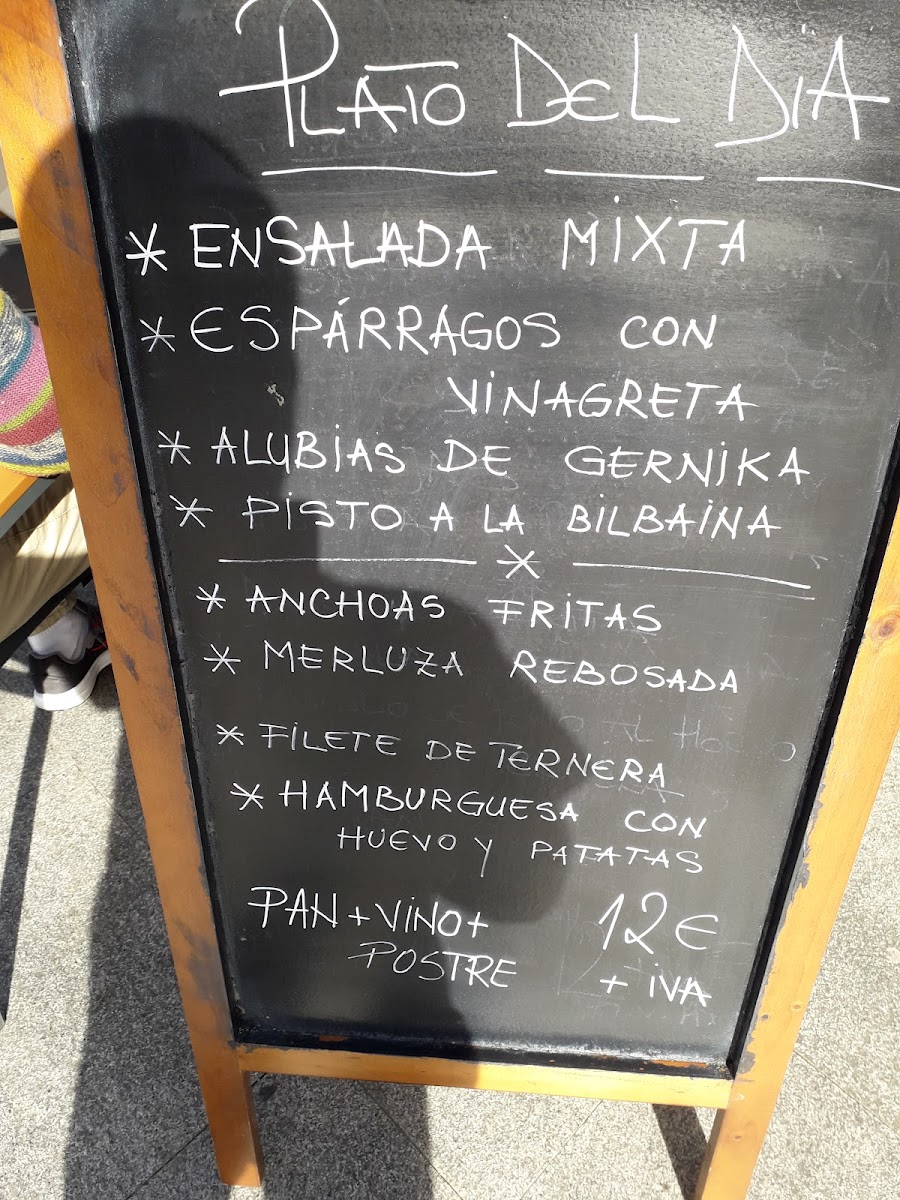 PLATO DEL DIA
* ENSALADA MIXTA
* ESPÁRRAGOS CON
VINAGRETA
* ALUBIAS DE GERNIKA
* PISTO A LA BILBAINA
*
* ANCHOAS FRITAS
* MERLUZA REBOSADA
* FILETE DE TERNERA
* HAMBURGUESA CON
HUEVO Y PATATAS
PAN+VINO+ 12€
POSTRE + IVA